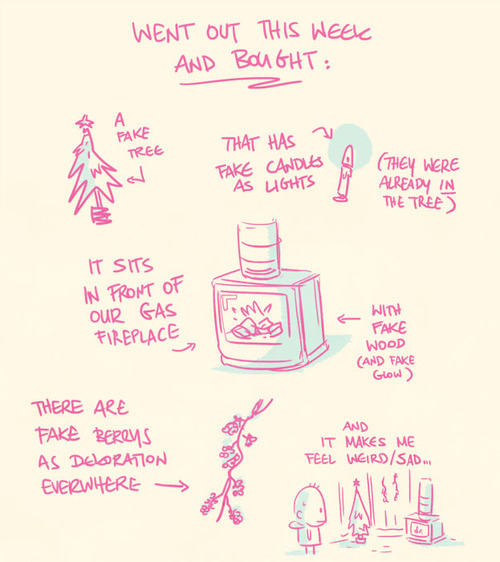 WENT OUT THIS WEEK
AND BOUGHT:
A
FAKE
TREE
THAT HAS
FAKE CANDLES
AS LIGHTS
(THEY WERE
ALREADY IN
THE TREE)
IT SITS
IN FRONT OF
OUR GAS
FIREPLACE
WITH
FAKE
WOOD
(AND FAKE
GLOW)
THERE ARE
FAKE BERRYS
AS DECORATION
EVERWHERE
AND
IT MAKES ME
FEEL WEIRD/SAD...